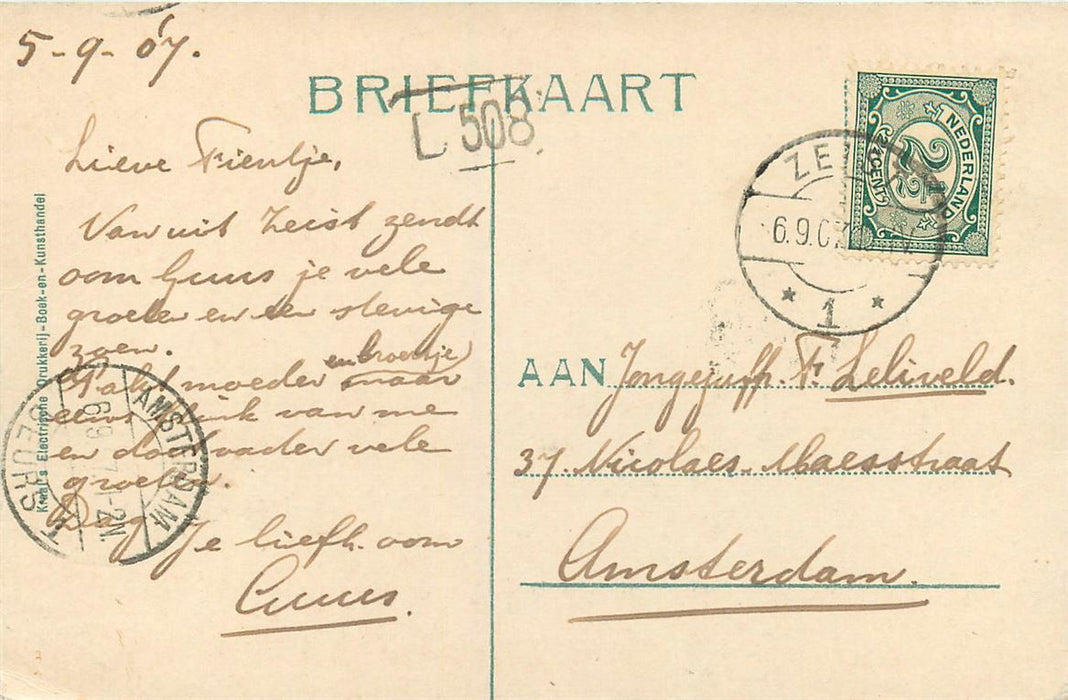 5-9-07.
BRIEFKAART
L 508
Lieve Fientje,
Vanuit Zeist zendt
oom Guus je vele
groeten en een stevige
zoen.
Pakt moeder en broertje maar
eens flink van me
en doe vader vele
groeten.
Dag. Je liefh. oom
Guus.
NEDERLAND
2½
CENT
ZEIST
6.9.07
1
AAN Jongejuffr. F. Leliveld.
37. Nicolaes Maesstraat
Amsterdam.
AMSTERDAM
6.9
1-2N
Electrische Drukkerij-Boek-en-Kunsthandel